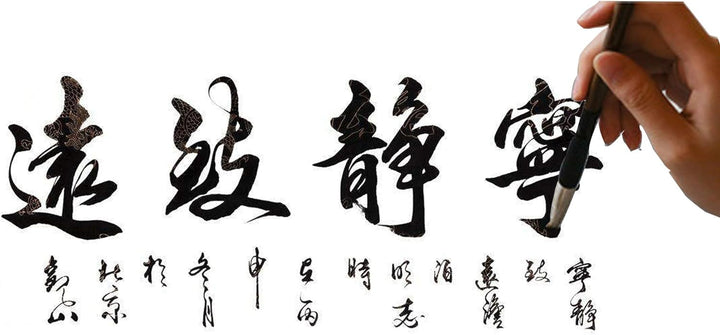 寧靜致遠
寧静致遠澹泊明志時在丙申冬月於北京山